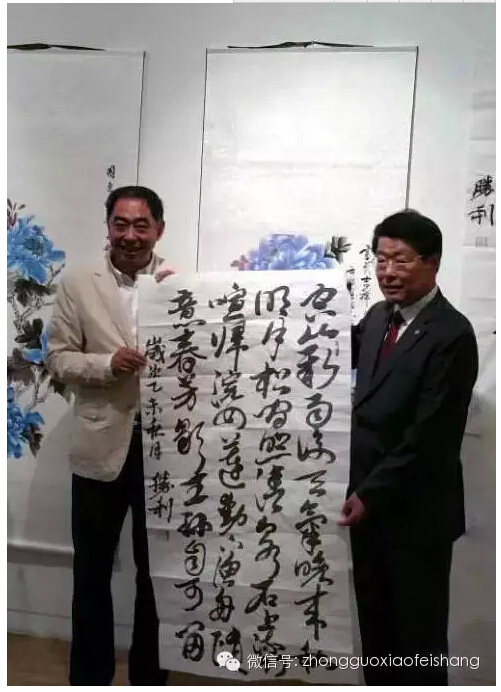 空山新雨後天氣晚來秋
明月松間照清泉石上流竹
喧歸浣女蓮動下漁舟隨
意春芳歇王孫自可留
歲次乙未秋月 勝利
勝利
微信号: zhongguoxiaofeishang